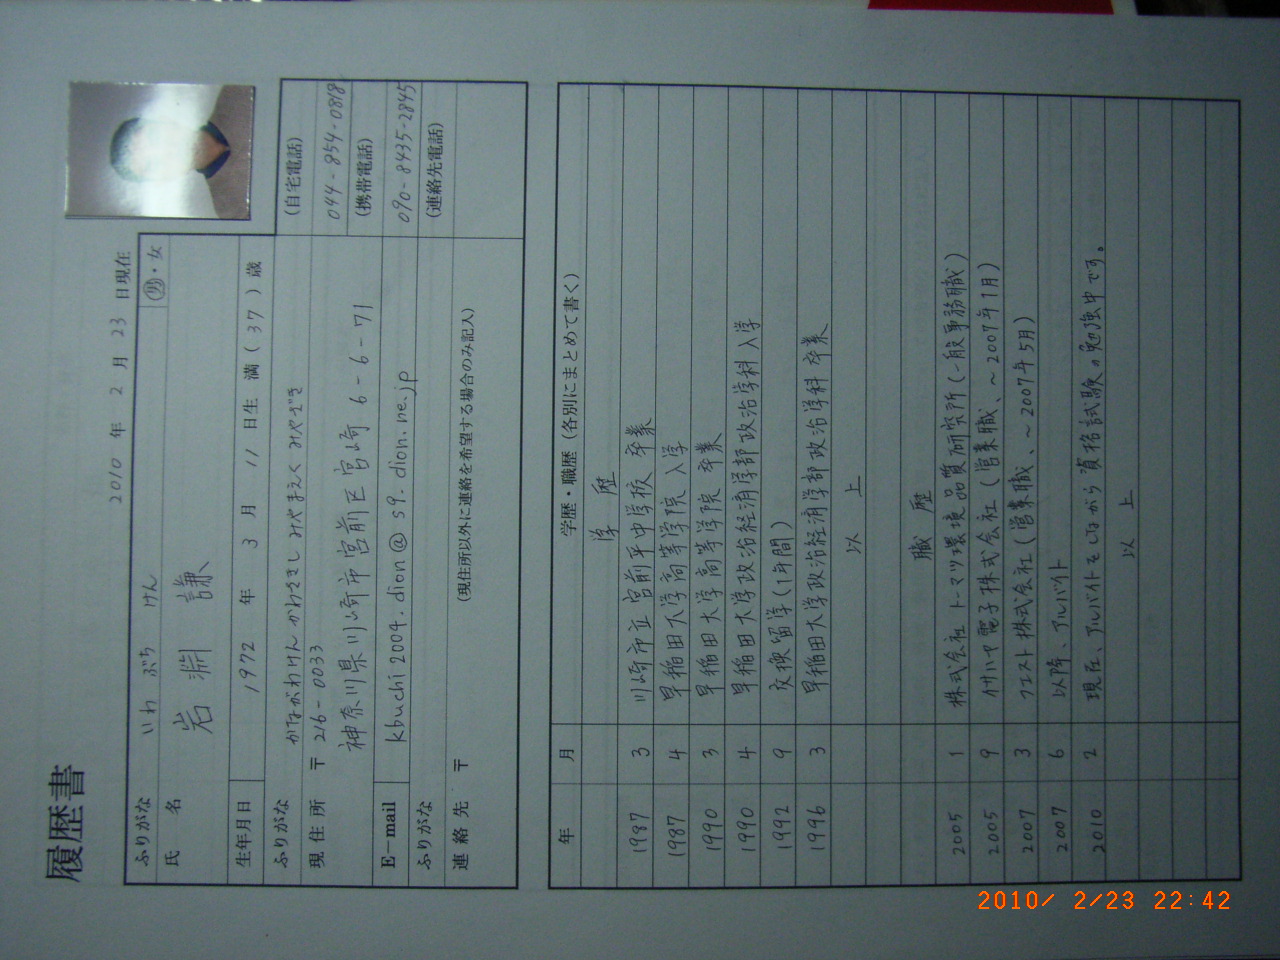 履歴書
2010 年 2 月 23 日現在
ふりがな いわ ぶち けん
男・女
氏 名 岩 渕 謙
生年月日 1972 年 3 月 11 日生 満 ( 37 ) 歳
ふりがな かながわけん かわさきし みやまえく みやざき
(自宅電話)
現 住 所 〒 216-0033
044-854-0818
神奈川県川崎市宮前区宮崎 6-6-71
(携帯電話)
E-mail kbuchi2004.dion@s9.dion.ne.jp
090-8435-2845
ふりがな
(連絡先電話)
連 絡 先 〒 (現住所以外に連絡を希望する場合のみ記入)
年 月 学歴・職歴 (各別にまとめて書く)
学 歴
1987 3 川崎市立 宮前平中学校 卒業
1987 4 早稲田大学高等学院 入学
1990 3 早稲田大学高等学院 卒業
1990 4 早稲田大学政治経済学部政治学科 入学
1992 9 交換留学 (1年間)
1996 3 早稲田大学政治経済学部政治学科 卒業
以 上
職 歴
2005 1 株式会社 トーマツ環境品質研究所 (一般事務職)
2005 9 電子株式会社 (営業職、~2007年1月)
2007 3 クエスト株式会社 (営業職、~2007年5月)
2007 6 以降、アルバイト
2010 2 現在、アルバイトをしながら資格試験の勉強中です。
以 上
2010/ 2/23 22:42